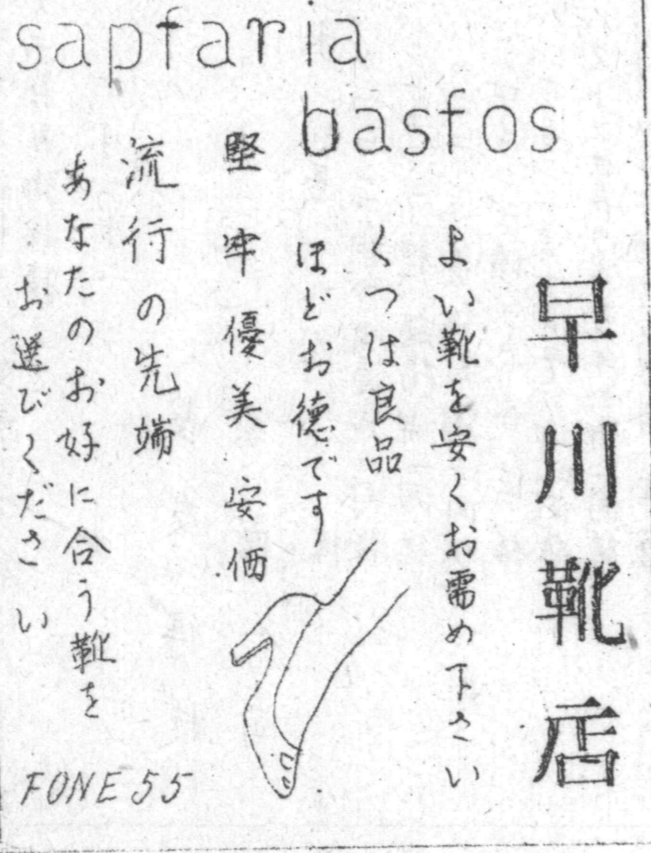 sapfaria
basfos
早川靴店
よい靴を安くお需め下さい
くつは良品
ほどお徳です
堅牢優美 安価
流行の先端
あなたのお好に合う靴を
お選びください
FONE 55